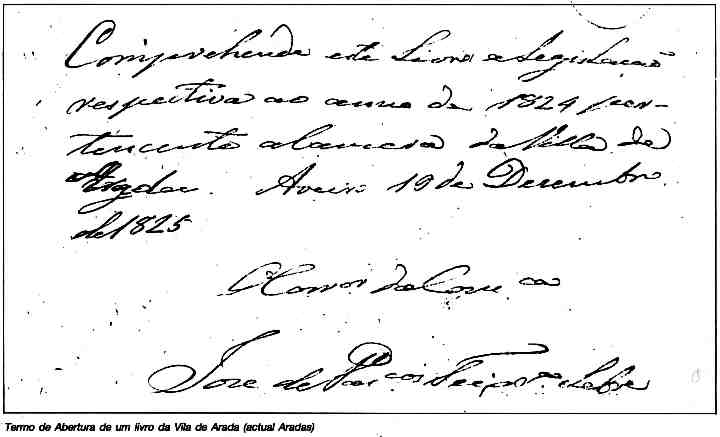 Comprehende este Livro a Legislação
respectiva ao anno de 1824 per-
tencente a Camera da Villa de
Aveiro 19 de Dezembro
de 1825
O Corr.or da Com.ca
Jose de
Termo de Abertura de um livro da Vila de Arada (actual Aradas)